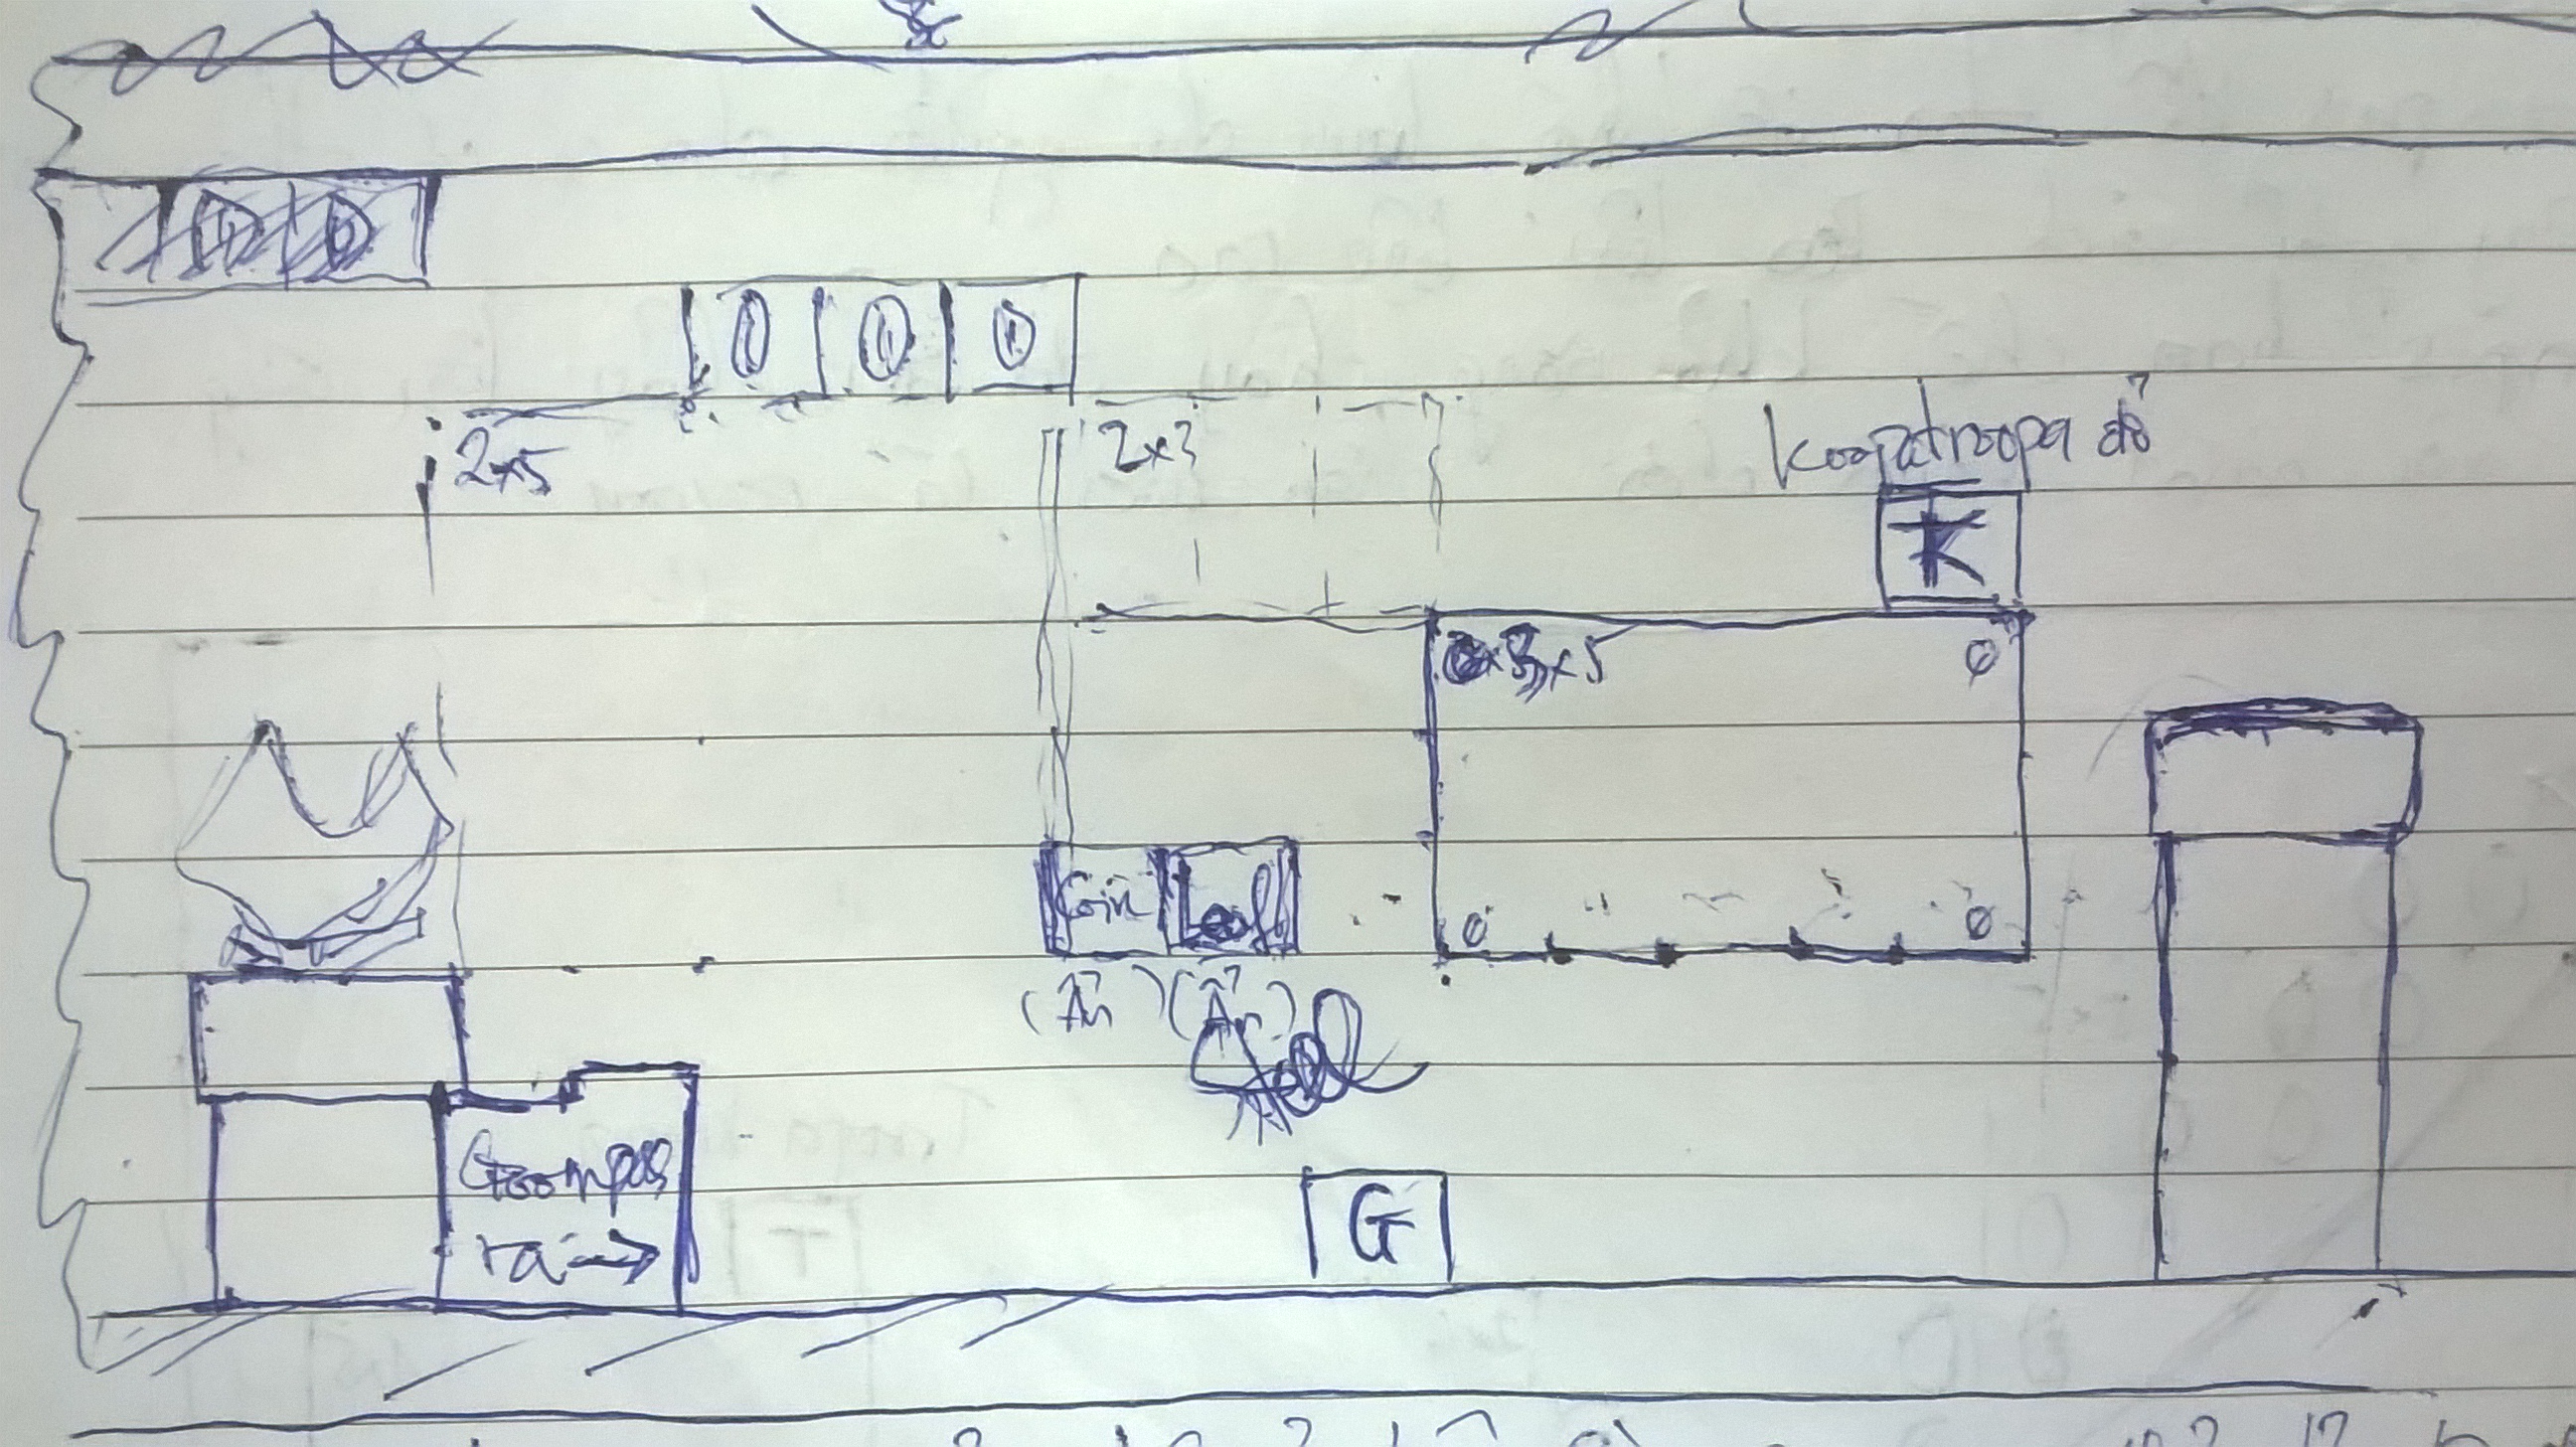 2x5
2x3
koopatroopa đỏ
K
x5
Coin
Leaf
(Ẩn) (Ẩn)
Goompas
ra →
G